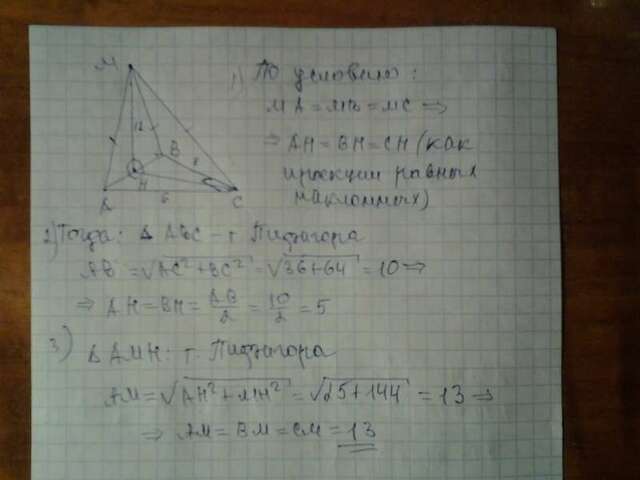 M
12
B
8
H
A
6
C
1) По условию:
MA = MB = MC ⇒
⇒ AH = BH = CH (как
проекции равных
наклонных)
2) Тогда: Δ ABC – т. Пифагора
AB = √AC² + BC² = √36 + 64 = 10 ⇒
⇒ AH = BH = AB/2 = 10/2 = 5
3) Δ AMH: т. Пифагора
AM = √AH² + MH² = √25 + 144 = 13 ⇒
⇒ AM = BM = CM = 13